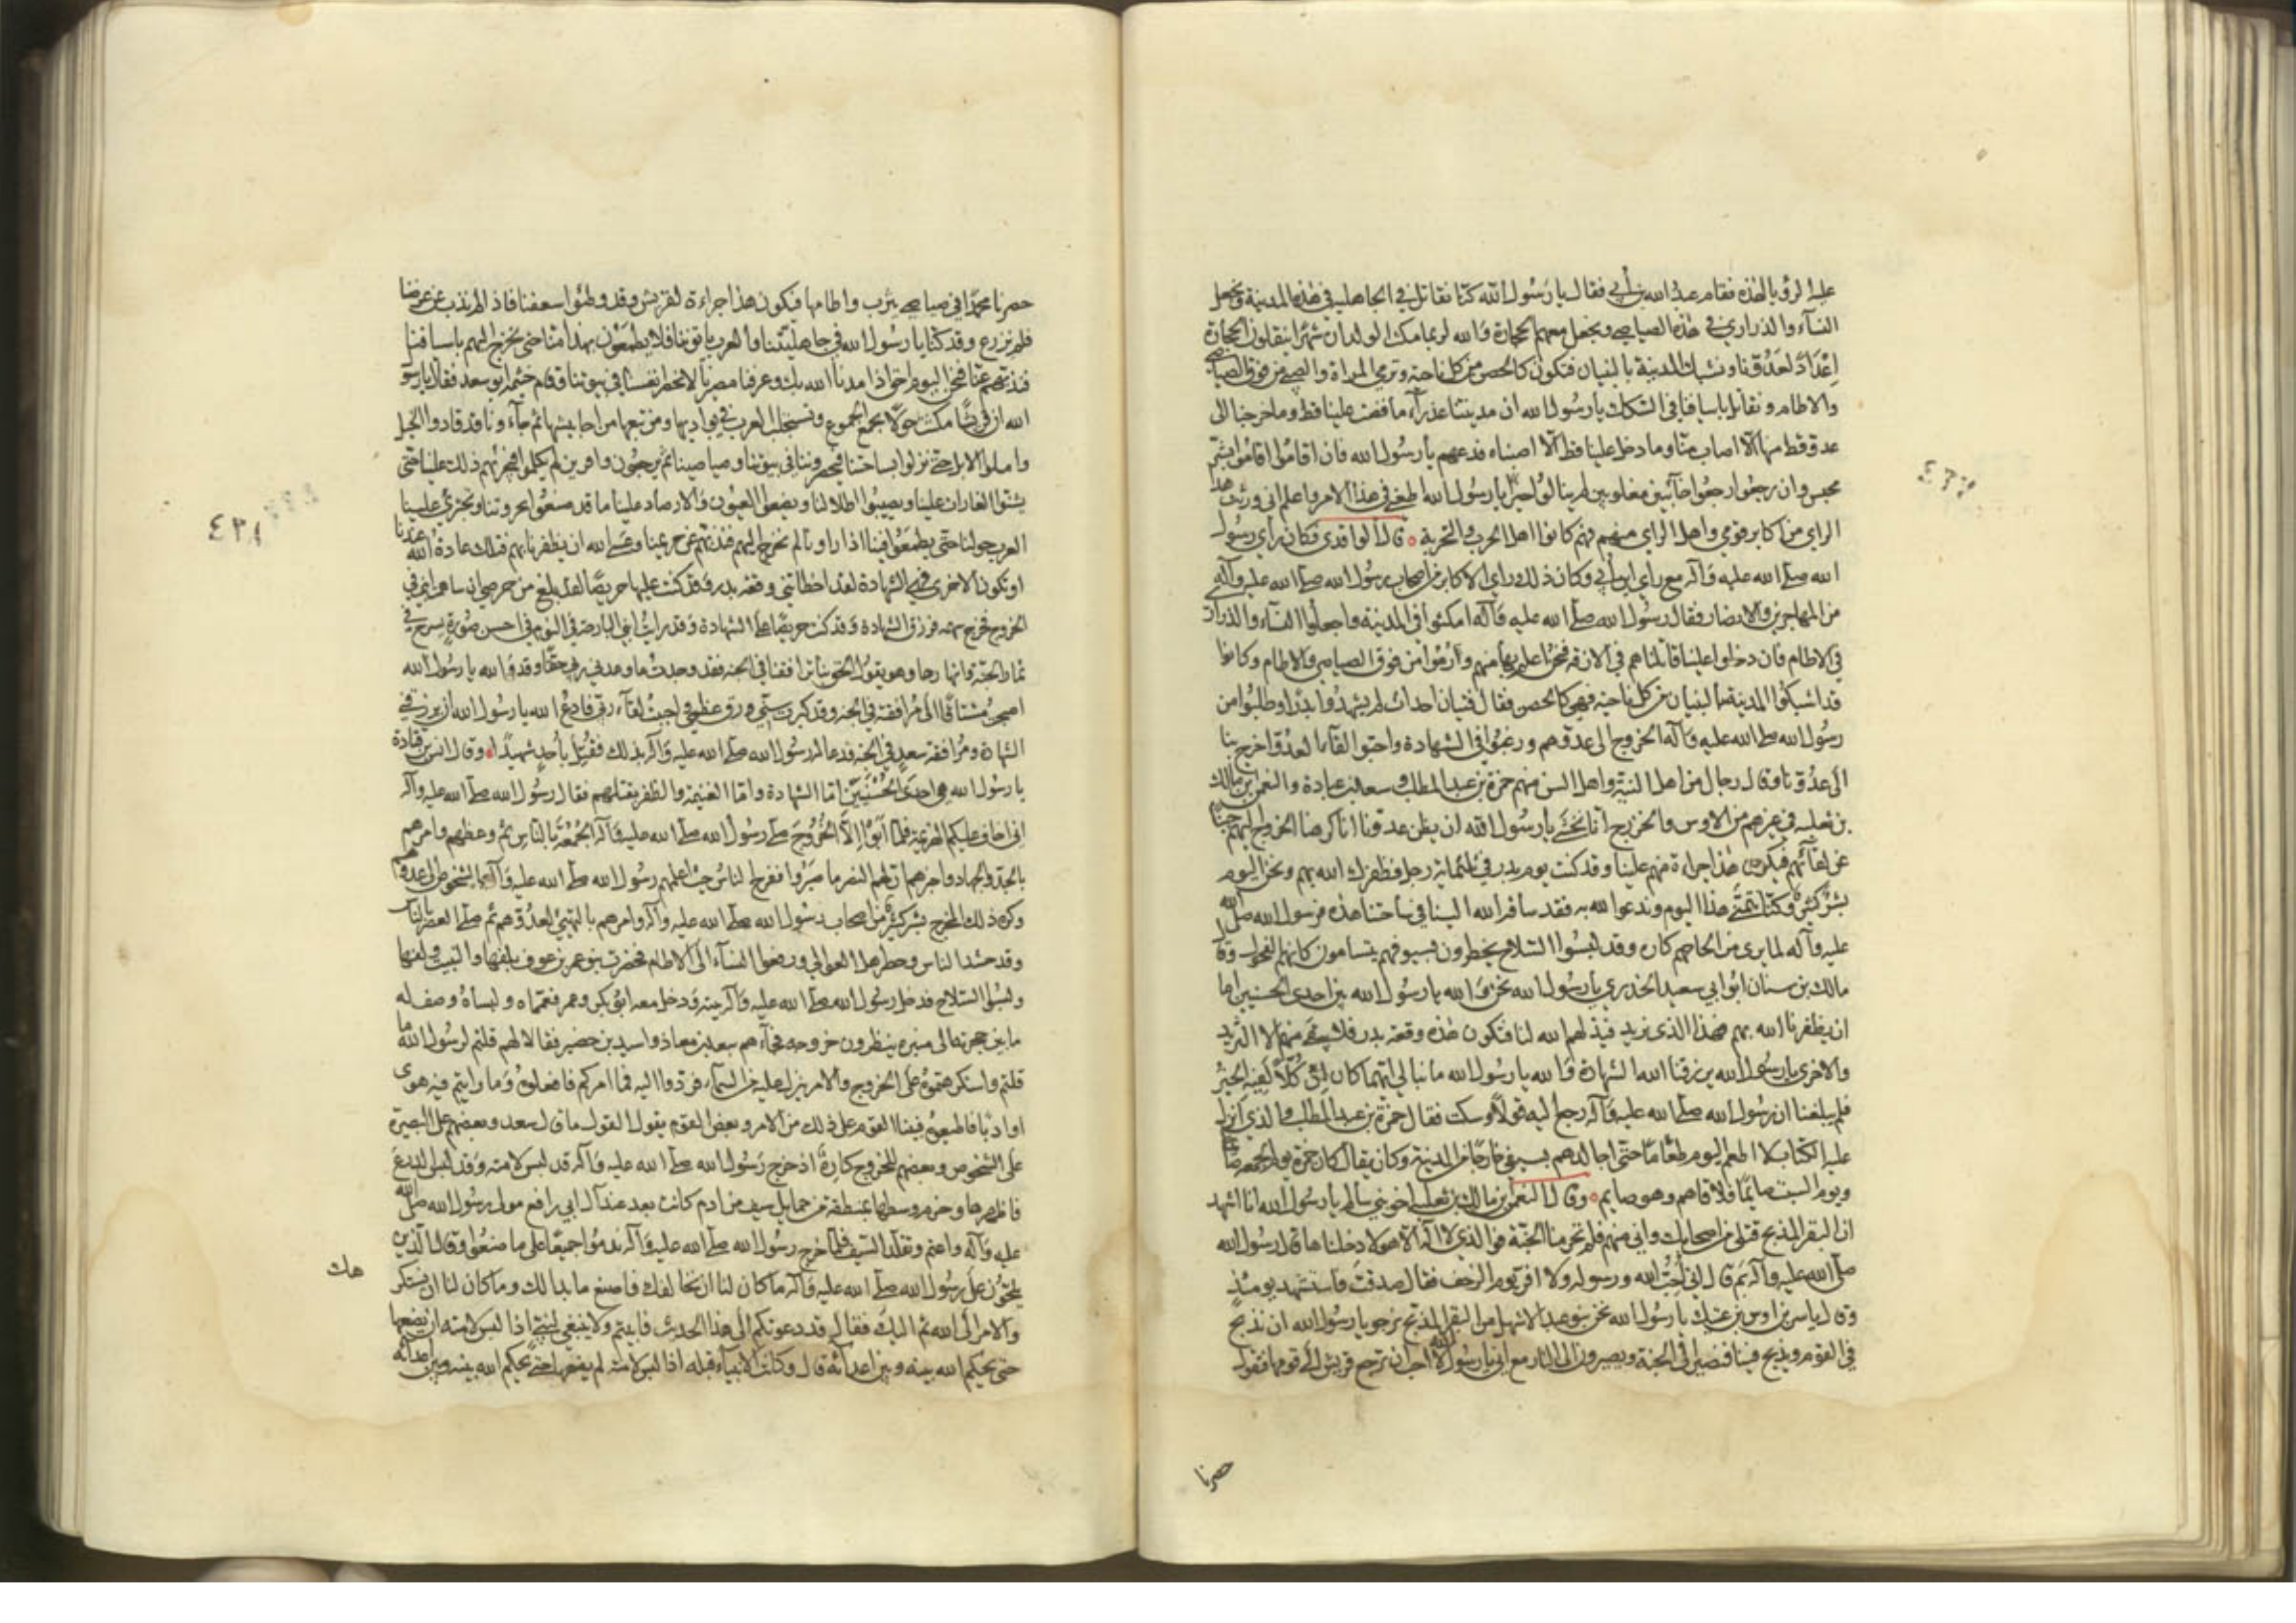 عليه الرؤيا لهذه فقام عبد الله بن أبي فقال يا رسول الله كنا نقاتل في الجاهلية في هذه المدينة ونجعل
النساء والذراري في هذه الصياصي ونجعل معهم الحجارة والله لربما مكث الولدان شهرا ينقلون الحجارة
إعدادا لعدونا ونشبك المدينة بالبنيان فتكون كالحصن من كل ناحية وترمي المراة والصبي من فوق الصياصي
والاطام ونقاتل باسيافنا في السكك يا رسول الله ان مدينتنا عذراء ما فضت علينا قط وما خرجنا الى
عدو قط منها الا اصاب منا وما دخل علينا قط الا اصبناه فدعهم يا رسول الله فان اقاموا اقاموا بشر
محبس وان رجعوا رجعوا خائبين مغلوبين لم ينالوا خيرا يا رسول الله اطعني في هذا الامر واعلم اني ورثت هذا
الراي من اكابر قومي واهل الراي منهم فهم كانوا اهل الحرب والتجربة قال الواقدي فكان راي رسول
الله صلى الله عليه وآله مع راي ابن أبي وكان ذلك راي الاكابر من اصحاب رسول الله صلى الله عليه وآله
من المهاجرين والانصار فقال رسول الله صلى الله عليه وآله امكثوا في المدينة واجعلوا النساء والذراري
في الاطام فان دخلوا علينا قاتلناهم في الازقة فنحن اعلم بها منهم وارموا من فوق الصياصي والاطام وكانوا
قد شبكوا المدينة بالبنيان من كل ناحية فهي كالحصن فقال فتيان احداث لم يشهدوا بدرا وطلبوا من
رسول الله صلى الله عليه وآله الخروج الى عدوهم ورغبوا في الشهادة واحبوا لقاء العدو اخرج بنا
الى عدونا وقال رجال من اهل النية واهل السن منهم حمزة بن عبد المطلب وسعد بن عبادة والنعمن بن مالك
بن ثعلبة في غيرهم من الاوس والخزرج انا نخشى يا رسول الله ان يظن عدونا انا كرهنا الخروج اليهم جبنا
عن لقائهم فيكون هذا جراءة منهم علينا وقد كنت يوم بدر في ثلثماية رجل فظفرك الله بهم ونحن اليوم
بشر كثير وكنا نتمنى هذا اليوم وندعوا الله به فقد ساقه الله الينا في ساحتنا هذه ورسول الله صلى الله
عليه وآله لما يرى من الحاحهم كاره وقد لبسوا السلاح يخطرون بسيوفهم يتسامون كانهم الفحول وقال
مالك بن سنان ابو ابي سعيد الخدري يا رسول الله نحن والله يا رسول الله بين احدى الحسنيين اما
ان يظفرنا الله بهم فهذا الذي نريد فيذلهم الله لنا فتكون هذه وقعة بدر فلا يبقى منهم الا الشريد
والاخرى يا رسول الله يرزقنا الله الشهادة والله يا رسول الله ما نبالي ايهما كان ان كلا لفيه الخير
فلم يبلغنا ان رسول الله صلى الله عليه وآله رجع اليه قولا وسكت فقال حمزة بن عبد المطلب والذي انزل
عليه الكتاب لا اطعم اليوم طعاما حتى اجالدهم بسيفي خارجا من المدينة وكان يقال كان حمزة يوم الجمعة صائما
ويوم السبت صايما فلاقاهم وهو صايم وقال النعمن بن مالك بن ثعلبة اخو بني سالم يا رسول الله انا اشهد
ان البقر المذبح قتلى من اصحابك واني منهم فلم تحرمنا الجنة فو الذي لا اله الا هو لادخلنها قال رسول الله
صلى الله عليه وآله بم قال اني احب الله ورسوله ولا افر يوم الزحف فقال صدقت فاستشهد يومئذ
وقال اياس بن اوس بن عتيك يا رسول الله نحن بنو عبد الاشهل من البقر المذبح نرجو يا رسول الله ان نذبح
في القوم ويذبح فينا فنصير الى الجنة ويصيرون الى النار مع اني يا رسول الله لا احب ان ترجع قريش الى قومها فتقول
حصرنا
٤٣٧
حصرنا محمدا في صياصي يثرب واطامها فيكون هذا جراءة لقريش وقد وطئوا سعفنا فاذا لم نذب عن عرضنا
فلم نزرع وقد كنا يا رسول الله في جاهليتنا والعرب ياتوننا فلا يطمعون بهذا منا حتى نخرج اليهم باسيافنا
فنذبهم عنا فنحن اليوم احق اذا مدنا الله بك وعرفنا مصيرنا لا نحصر انفسنا في بيوتنا وقام خيثمة ابو سعد فقال يا رسول
الله ان قريشا مكثت حولا تجمع الجموع وتستجلب العرب في بواديها ومن تبعها من احابيشها ثم جاءونا قد قادوا الخيل
وامتطوا الابل حتى نزلوا بساحتنا فيحصروننا في بيوتنا وصياصينا ثم يرجعون وافرين لم يكلموا فيجرئهم ذلك علينا حتى
يشنوا الغارات علينا ويصيبوا اطلالنا ويضعوا العيون والارصاد علينا مع ما قد صنعوا بحروثنا وتجترئ علينا
العرب حولنا حتى يطمعوا فينا اذا راونا لم نخرج اليهم فنذبهم عن حريمنا وعسى الله ان يظفرنا بهم فتلك عادة الله عندنا
او تكون الاخرى فهي الشهادة لقد اخطاتني وقعة بدر وقد كنت عليها حريصا لقد بلغ من حرصي ان ساهمت ابني في
الخروج فخرج سهمه فرزق الشهادة وقد كنت حريصا على الشهادة وقد رايت ابني البارحة في النوم في احسن صورة يسرح في
ثمار الجنة وانهارها وهو يقول الحق بنا ترافقنا في الجنة فقد وجدت ما وعدني ربي حقا وقد والله يا رسول الله
اصبحت مشتاقا الى مرافقته في الجنة وقد كبرت سني ورق عظمي واحببت لقاء ربي فادع الله يا رسول الله ان يرزقني
الشهادة ومرافقة سعد في الجنة فدعا له رسول الله صلى الله عليه وآله بذلك فقتل بأحد شهيدا وقال انس بن قتادة
يا رسول الله هي احدى الحسنيين اما الشهادة واما الغنيمة والظفر بقتلهم فقال رسول الله صلى الله عليه وآله
اني اخاف عليكم الهزيمة فلما ابوا الا الخروج صلى رسول الله صلى الله عليه وآله الجمعة بالناس ثم وعظهم وامرهم
بالجد والجهاد واخبرهم ان لهم النصر ما صبروا ففرح الناس حيث اعلمهم رسول الله صلى الله عليه وآله بالشخوص الى عدوهم
وكره ذلك المخرج بشر كثير من اصحاب رسول الله صلى الله عليه وآله وامرهم بالتهيئ لعدوهم ثم صلى العصر بالناس
وقد حشد الناس وحضر اهل العوالي ورفعوا النساء الى الاطام فحضرت بنو عمرو بن عوف بلفها والنبيت ولفها
ولبسوا السلاح فدخل رسول الله صلى الله عليه وآله بيته ودخل معه ابو بكر وعمر فعمماه ولبساه وصف له
ما بين حجرته الى منبره ينتظرون خروجه فجاءهم سعد بن معاذ واسيد بن حضير فقالا لهم قلتم لرسول الله ما
قلتم واستكرهتموه على الخروج والامر ينزل عليه من السماء فردوا اليه فما امركم فافعلوه وما رايتم فيه هوى
او ادبا فاطيعوه فبينا القوم على ذلك من الامر وبعض القوم يقول القول ما قال سعد وبعضهم على البصيرة
على الشخوص وبعضهم للخروج كاره اذ خرج رسول الله صلى الله عليه وآله قد لبس لامته وقد لبس الدرع
فاظهرها وحزم وسطها بمنطقة من حمايل سيف من ادم كانت بعد عند آل ابي رافع مولى رسول الله صلى الله
عليه وآله واعتم وتقلد السيف فلما خرج رسول الله صلى الله عليه وآله ندموا جميعا على ما صنعوا وقال الذين
يلحون على رسول الله صلى الله عليه وآله ما كان لنا ان نخالفك فاصنع ما بدا لك وما كان لنا ان نستكرهك
والامر الى الله ثم اليك فقال قد دعوتكم الى هذا الحديث فابيتم ولا ينبغي لنبي اذا لبس لامته ان يضعها
حتى يحكم الله بينه وبين اعدائه قال وكانت الانبياء قبله اذا لبس لامته لم يضعها حتى يحكم الله بينه وبين اعدائه
٤٣٨